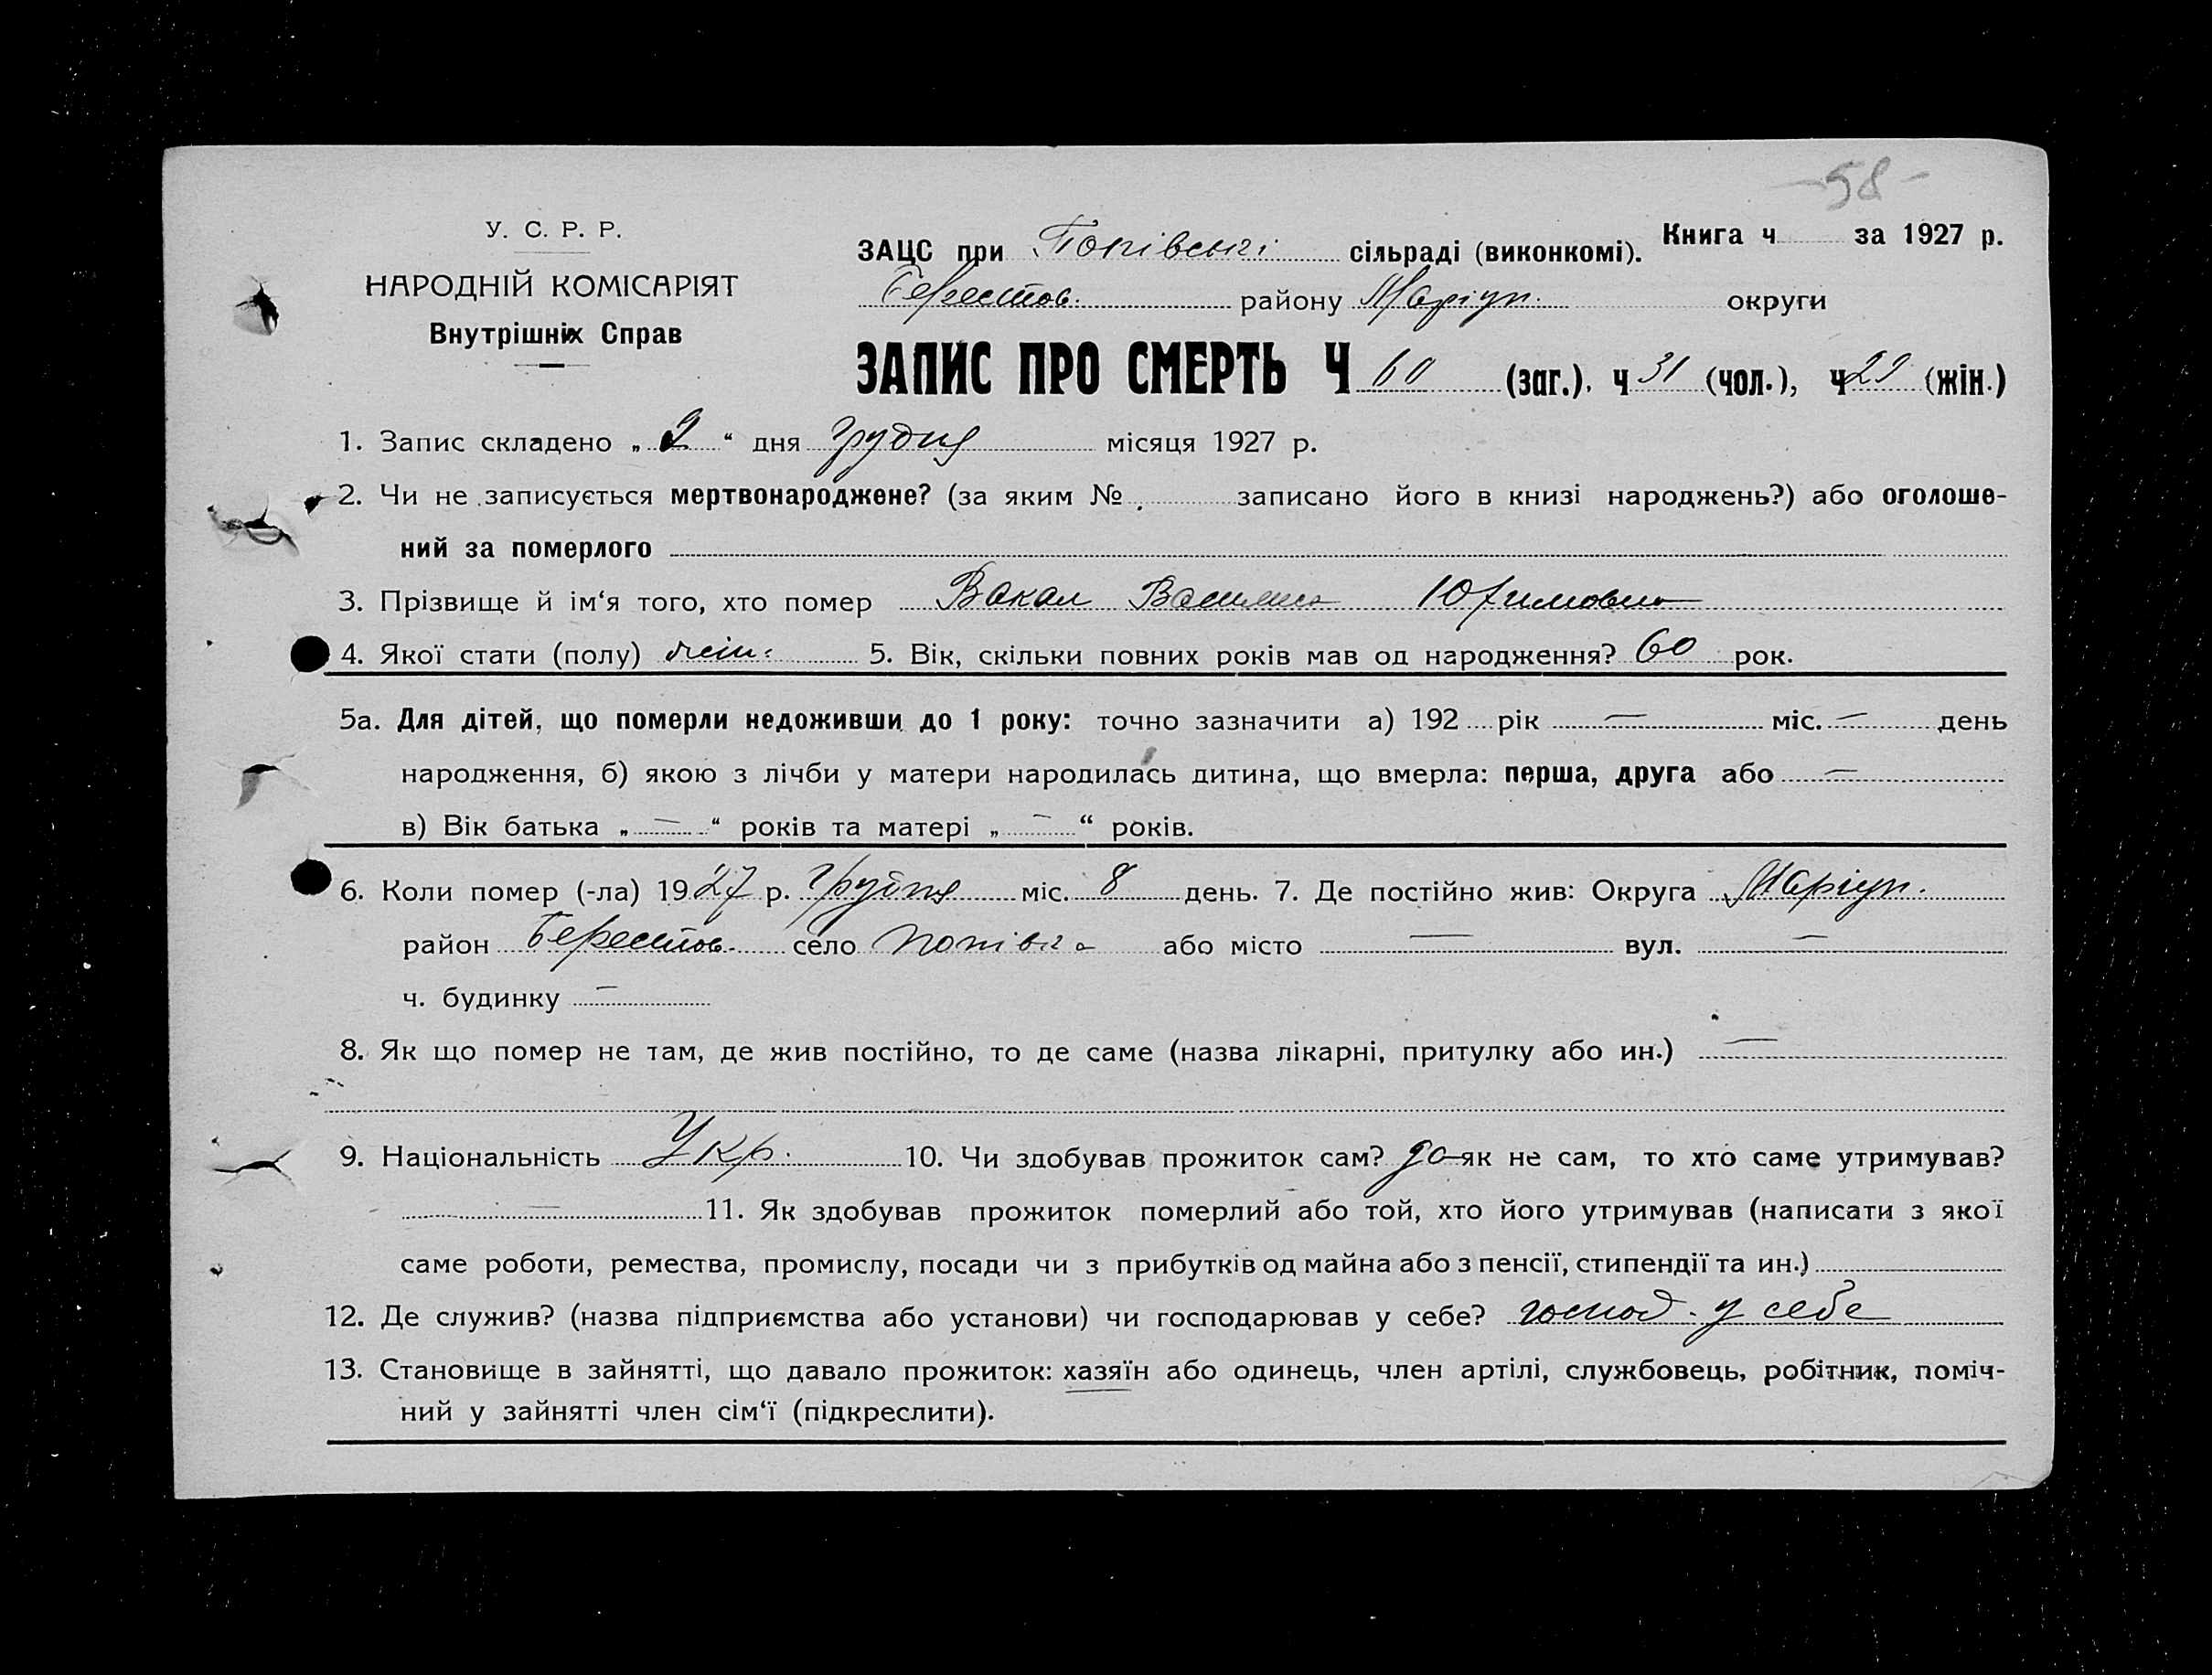 -58-
У. С. Р. Р.
НАРОДНІЙ КОМІСАРІЯТ
Внутрішніх Справ
ЗАЦС при Попівські сільраді (виконкомі). Книга ч за 1927 р.
Берестов. району Маріуп. округи
ЗАПИС ПРО СМЕРТЬ Ч 60 (заг.). ч 31 (чол.), ч 29 (жін.)
1. Запис складено „ 9 “ дня грудня місяця 1927 р.
2. Чи не записується мертвонароджене? (за яким № записано його в книзі народжень?) або оголоше-
ний за померлого
3. Прізвище й ім‘я того, хто помер Вакал Василина Юхимовна
4. Якої стати (полу) жін. 5. Вік, скільки повних років мав од народження? 60 рок.
5а. Для дітей, що померли недоживши до 1 року: точно зазначити а) 192 рік — міс. — день
народження, б) якою з лічби у матери народилась дитина, що вмерла: перша, друга або —
в) Вік батька „ — “ років та матері „ — “ років.
6. Коли помер (-ла) 1927 р. грудня міс. 8 день. 7. Де постійно жив: Округа Маріуп.
район Берестов. село Попівка або місто — вул. —
ч. будинку —
8. Як що помер не там, де жив постійно, то де саме (назва лікарні, притулку або ин.) —
9. Національність Укр. 10. Чи здобував прожиток сам? да як не сам, то хто саме утримував?
— 11. Як здобував прожиток померлий або той, хто його утримував (написати з якої
саме роботи, ремества, промислу, посади чи з прибутків од майна або з пенсії, стипендії та ин.)
12. Де служив? (назва підприємства або установи) чи господарював у себе? господ. у себе
13. Становище в зайнятті, що давало прожиток: хазяїн або одинець, член артілі, службовець, робітник, поміч-
ний у зайнятті член сім‘ї (підкреслити).